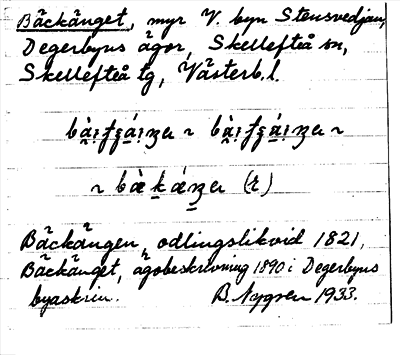 Bäckänget, myr V. byn Stensvedjan,
Degerbyns ägor, Skellefteå sn,
Skellefteå tg, Västerb.l.
~
~ bæ̀kǽŋɐ (t)
Bäckängen, odlingslikvid 1821,
Bäckänget, ägobeskrivning 1890 i Degerbyns
byaskrin. B. Nygren 1933.